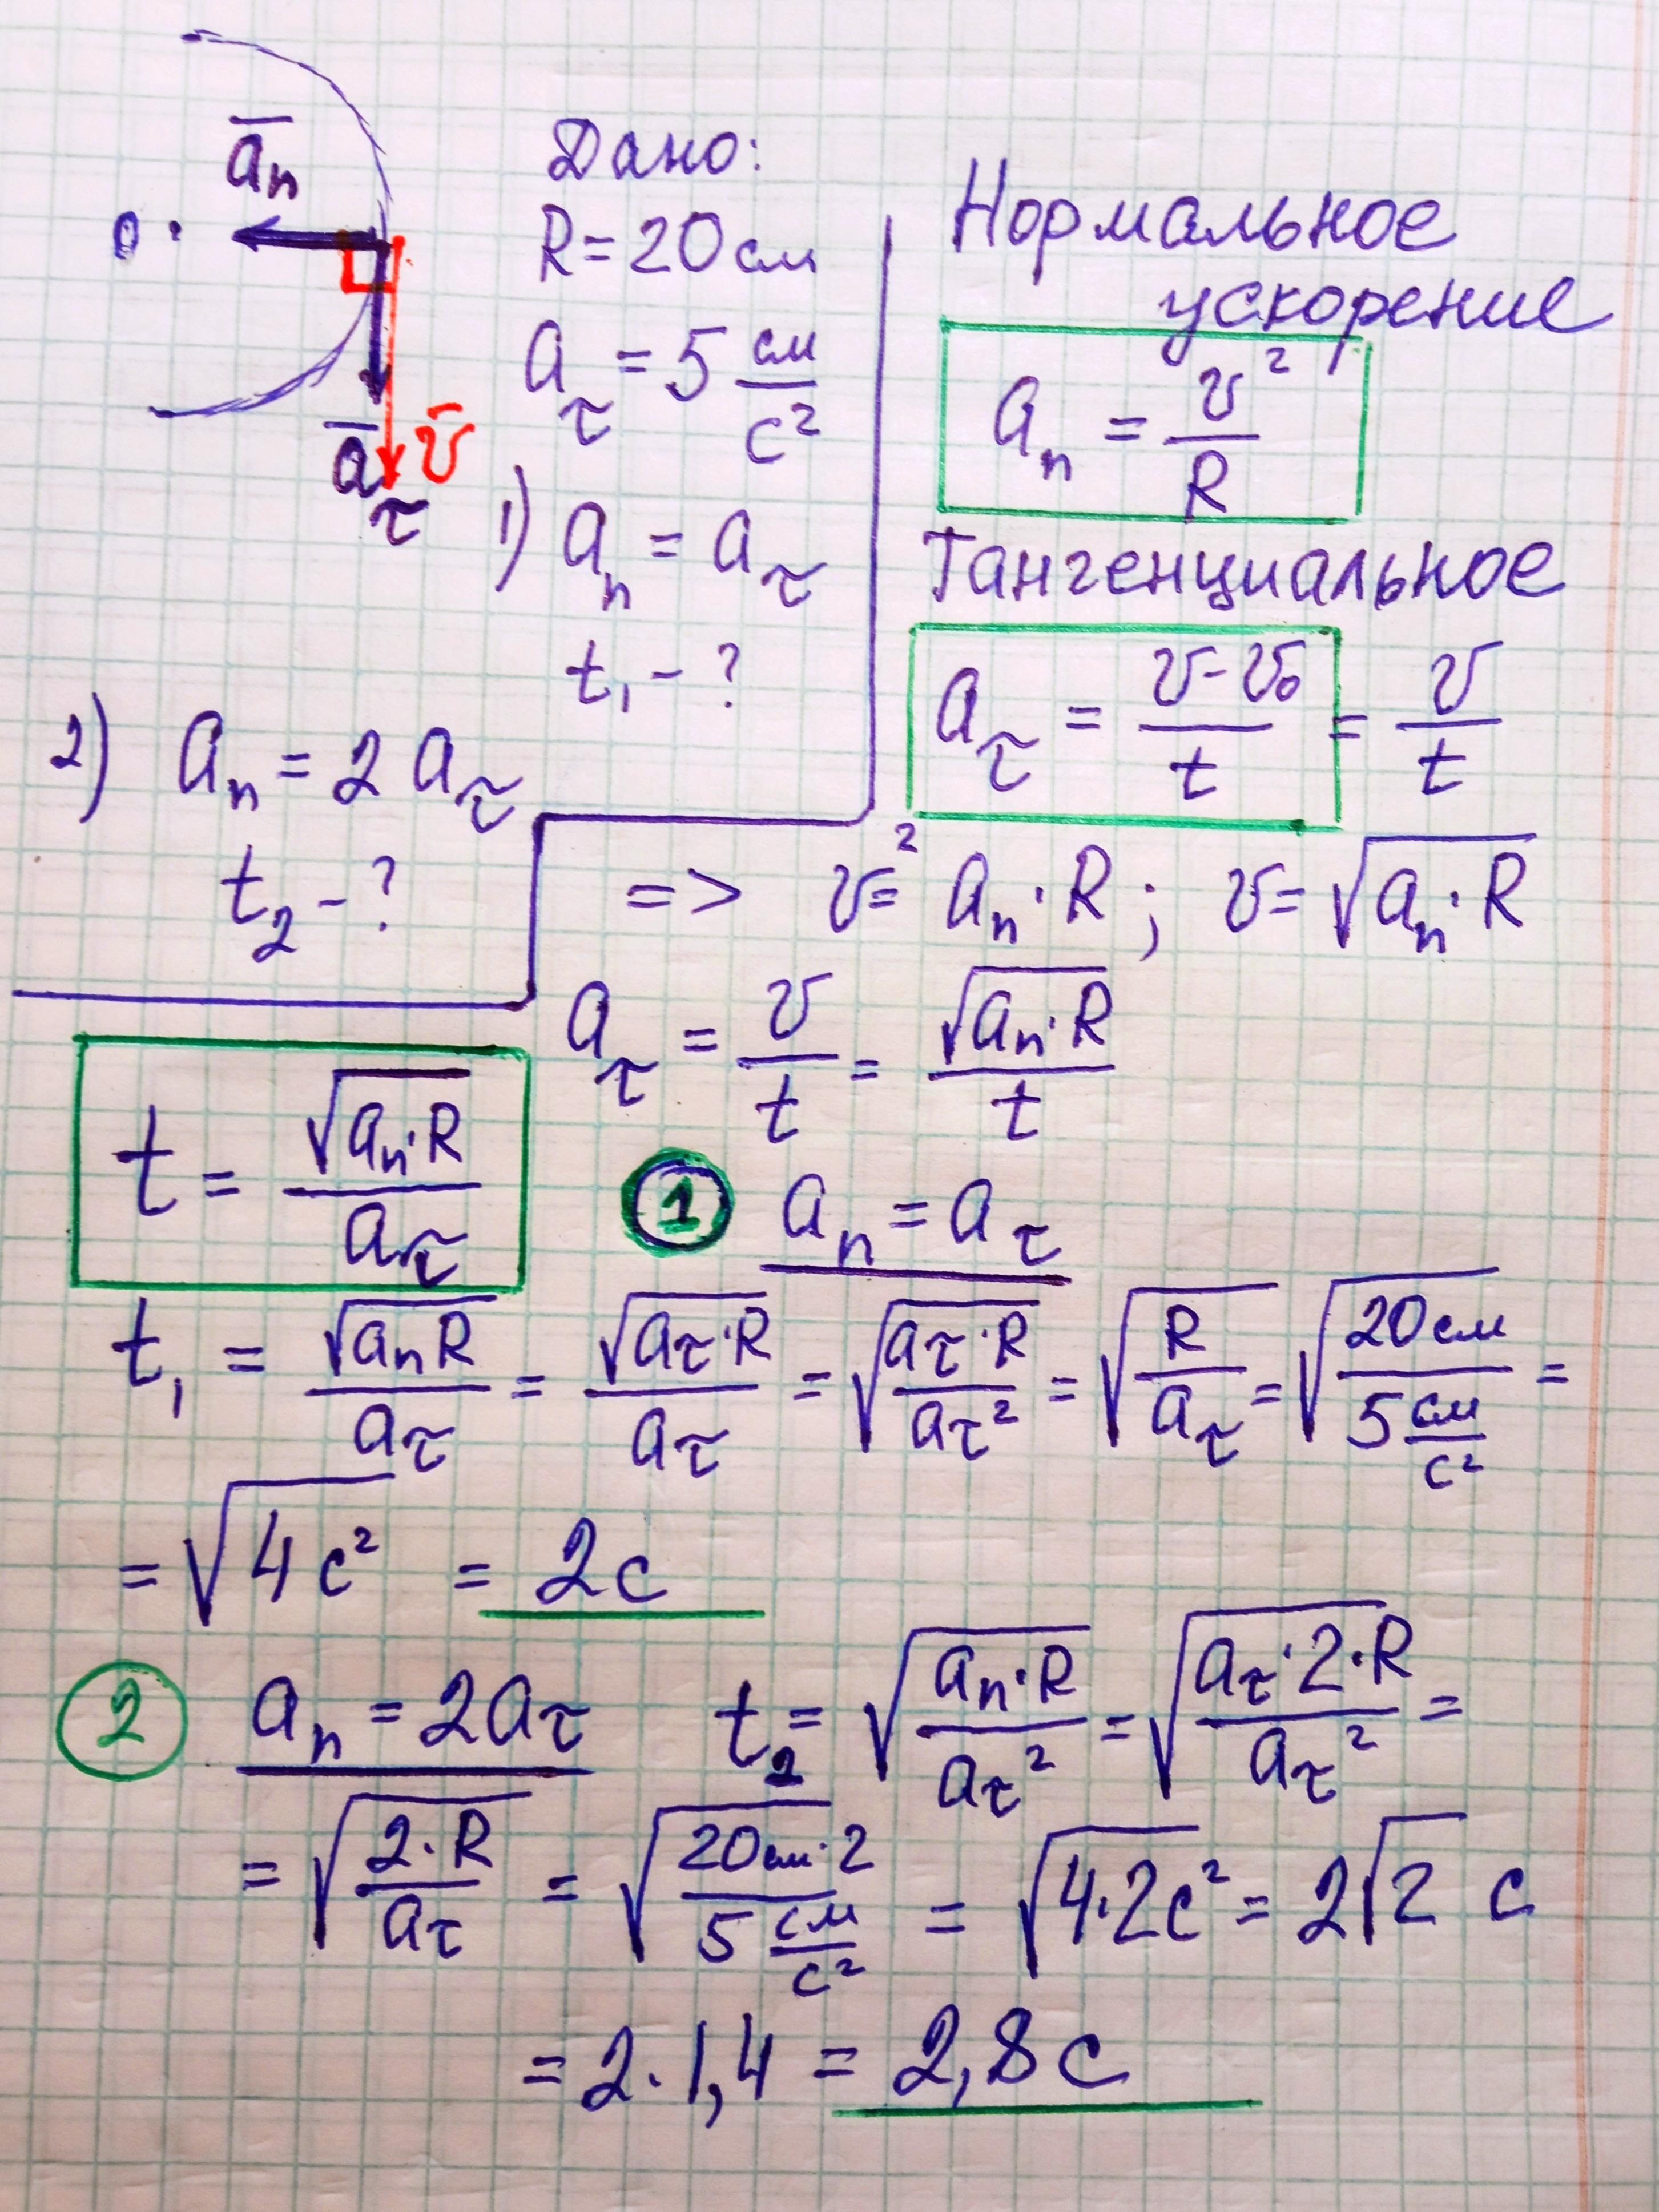 a̅ₙ
0 ·
a̅_τ v̅
Дано:
R = 20 см
a_τ = 5 см/с²
1) aₙ = a_τ
t₁ - ?
2) aₙ = 2 a_τ
t₂ - ?
Нормальное
ускорение
aₙ = v²/R
Тангенциальное
a_τ = (v - v₀)/t = v/t
=> v² = aₙ · R ; v = √(aₙ · R)
a_τ = v/t = √(aₙ · R)/t
t = √(aₙ · R)/a_τ
① aₙ = a_τ
t₁ = √(aₙ R)/a_τ = √(a_τ · R)/a_τ = √(a_τ · R/a_τ²) = √(R/a_τ) = √(20 см/5 см/с²) =
= √(4 с²) = 2 с
② aₙ = 2a_τ t₂ = √(aₙ · R/a_τ²) = √(a_τ · 2 · R/a_τ²) =
= √(2 · R/a_τ) = √(20 см · 2/5 см/с²) = √(4 · 2 с²) = 2√2 с
= 2 · 1,4 = 2,8 с